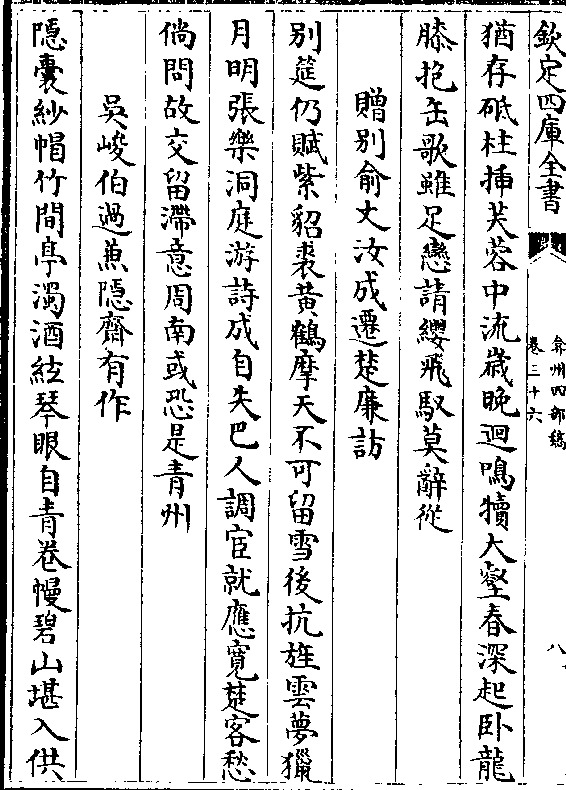 欽定四庫全書
弇州四部稿
卷三十六
八
猶存砥柱揷芙蓉中流歲晚迴鳴犢大壑春深起卧龍
膝抱缶歌雖足戀請纓飛馭莫辭從
贈别俞丈汝成遷楚廉訪
别筵仍賦紫貂裘黄鶴摩天不可留雪後抗旌雲夢獵
月明張樂洞庭游詩成自失巴人調宦就應寛楚客愁
倘問故交留滯意周南或恐是青州
吳峻伯過兼隱齋有作
隠囊紗帽竹間亭濁酒絃琴眼自青卷幔碧山堪入供